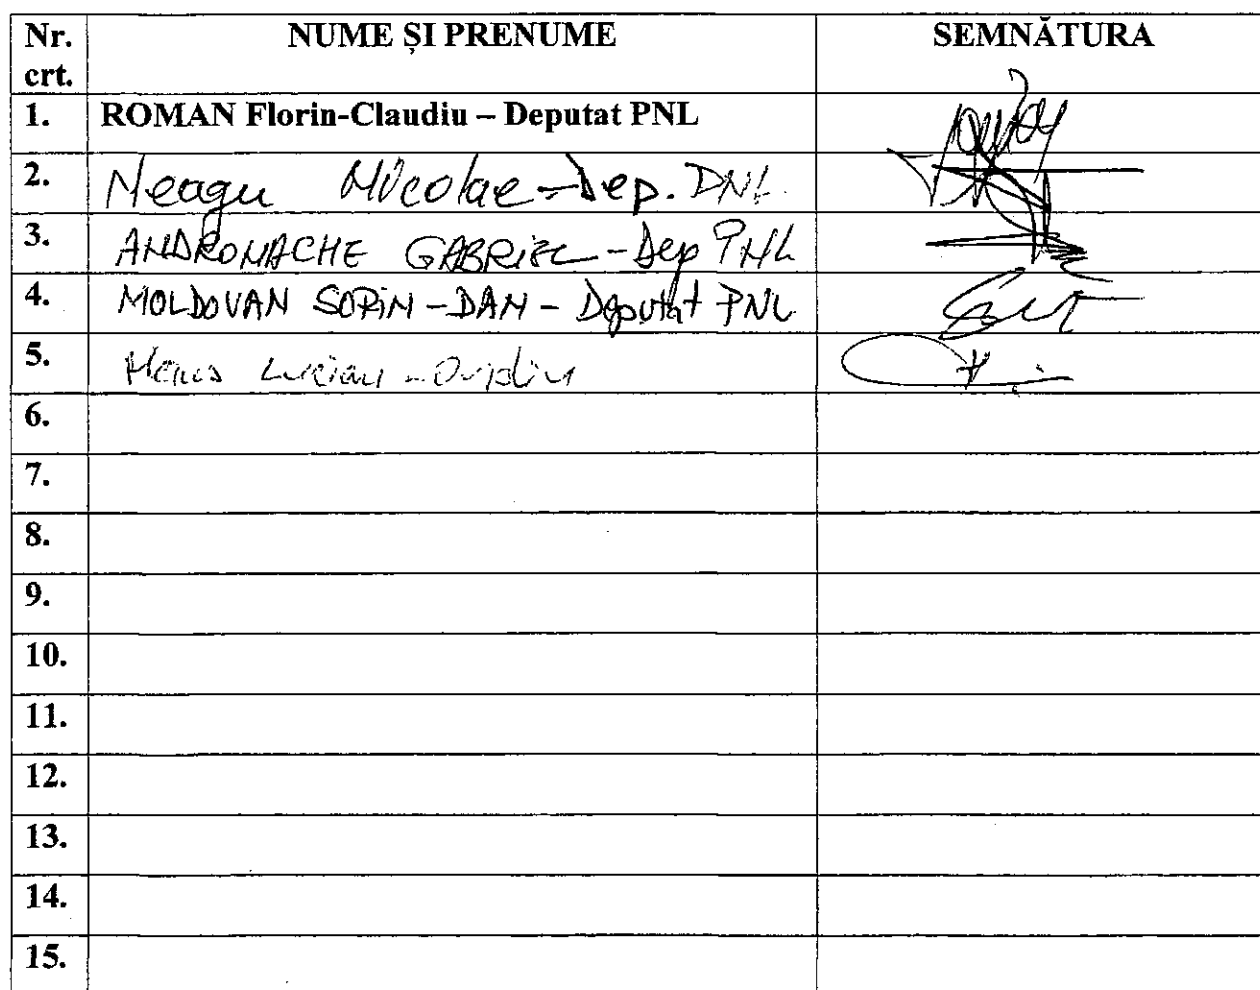 Nr. crt. NUME ȘI PRENUME SEMNĂTURA
1. ROMAN Florin-Claudiu – Deputat PNL
2. Neagu Nicolae - Dep. PNL
3. ANDRONACHE GABRIEL - Dep PNL
4. MOLDOVAN SORIN - DAN - Deputat PNL
5. Lucian - Ovidiu
6.
7.
8.
9.
10.
11.
12.
13.
14.
15.